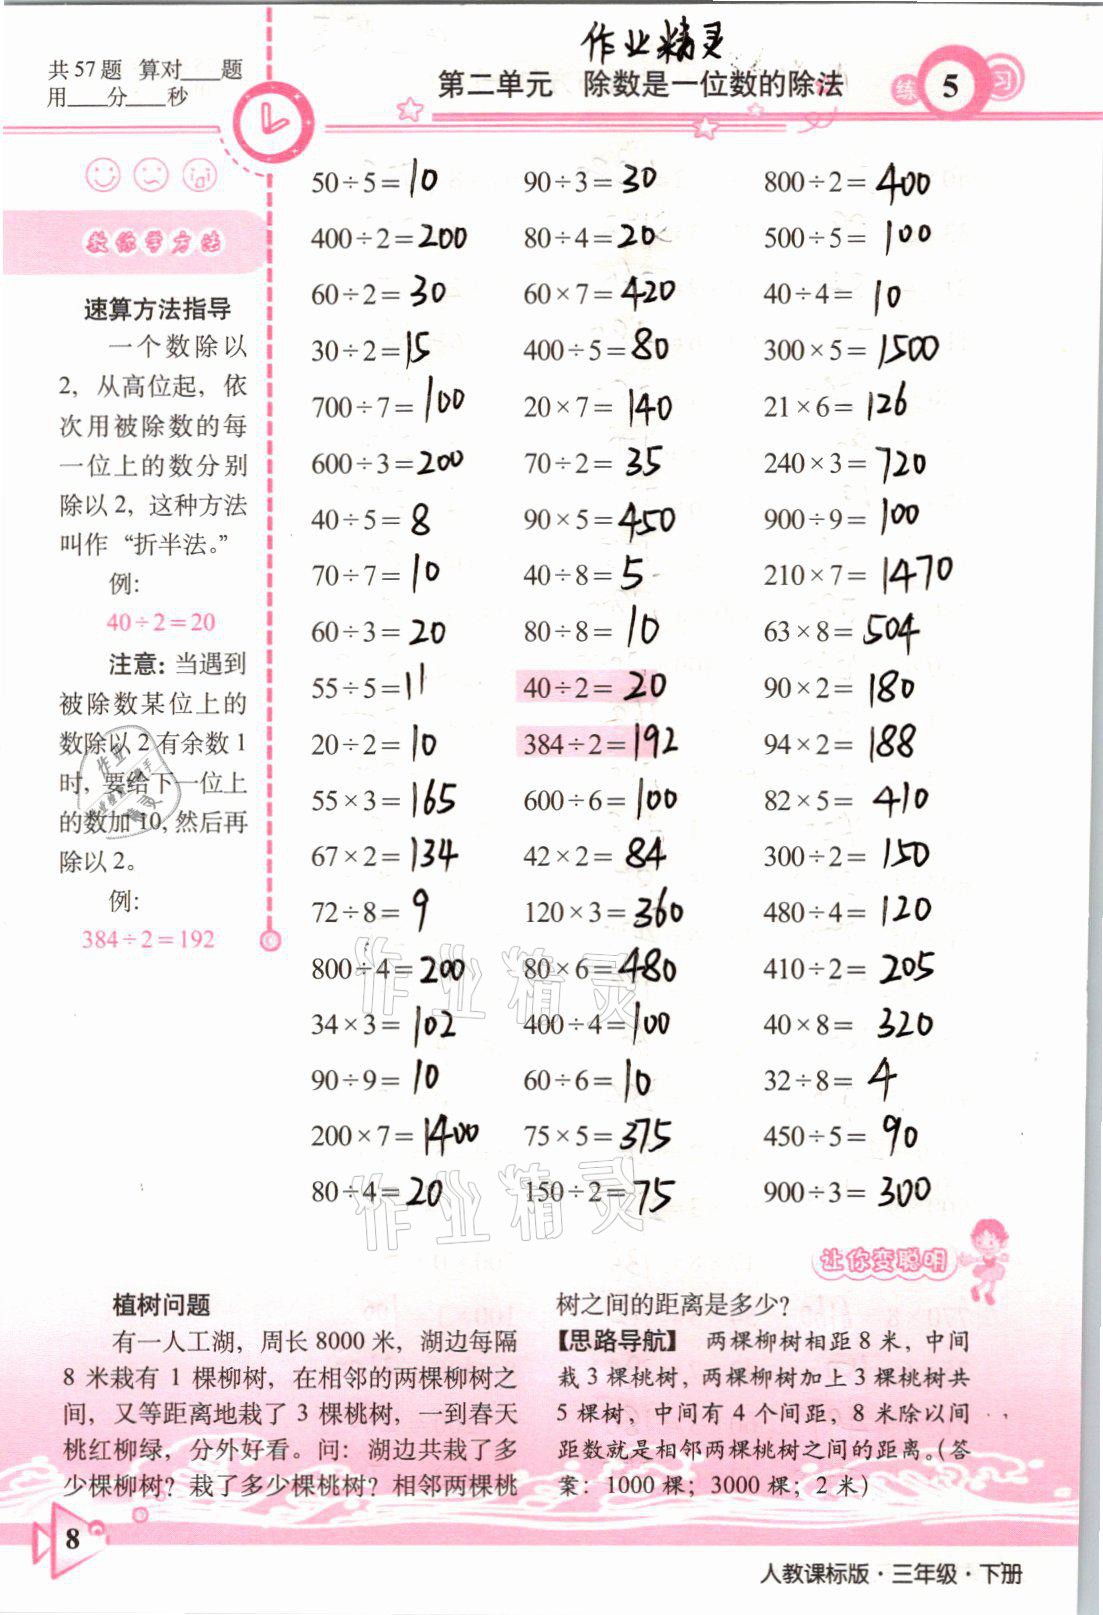 作业精灵
共57题 算对____题
用____分____秒
第二单元 除数是一位数的除法
练 5 习
教你学方法
速算方法指导
一个数除以
2，从高位起，依
次用被除数的每
一位上的数分别
除以2，这种方法
叫作“折半法。”
例：
40÷2=20
注意：当遇到
被除数某位上的
数除以2有余数1
时，要给下一位上
的数加10，然后再
除以2。
例：
384÷2=192
50÷5=10 90÷3=30 800÷2=400
400÷2=200 80÷4=20 500÷5=100
60÷2=30 60×7=420 40÷4=10
30÷2=15 400÷5=80 300×5=1500
700÷7=100 20×7=140 21×6=126
600÷3=200 70÷2=35 240×3=720
40÷5=8 90×5=450 900÷9=100
70÷7=10 40÷8=5 210×7=1470
60÷3=20 80÷8=10 63×8=504
55÷5=11 40÷2=20 90×2=180
20÷2=10 384÷2=192 94×2=188
55×3=165 600÷6=100 82×5=410
67×2=134 42×2=84 300÷2=150
72÷8=9 120×3=360 480÷4=120
800÷4=200 80×6=480 410÷2=205
34×3=102 400÷4=100 40×8=320
90÷9=10 60÷6=10 32÷8=4
200×7=1400 75×5=375 450÷5=90
80÷4=20 150÷2=75 900÷3=300
作业精灵
作业精灵
让你变聪明
植树问题
有一人工湖，周长8000米，湖边每隔
8米栽有1棵柳树，在相邻的两棵柳树之
间，又等距离地栽了3棵桃树，一到春天
桃红柳绿，分外好看。问：湖边共栽了多
少棵柳树？栽了多少棵桃树？相邻两棵桃
树之间的距离是多少？
【思路导航】 两棵柳树相距8米，中间
栽3棵桃树，两棵柳树加上3棵桃树共
5棵树，中间有4个间距，8米除以间
距数就是相邻两棵桃树之间的距离。（答
案：1000棵；3000棵；2米）
8
人教课标版·三年级·下册